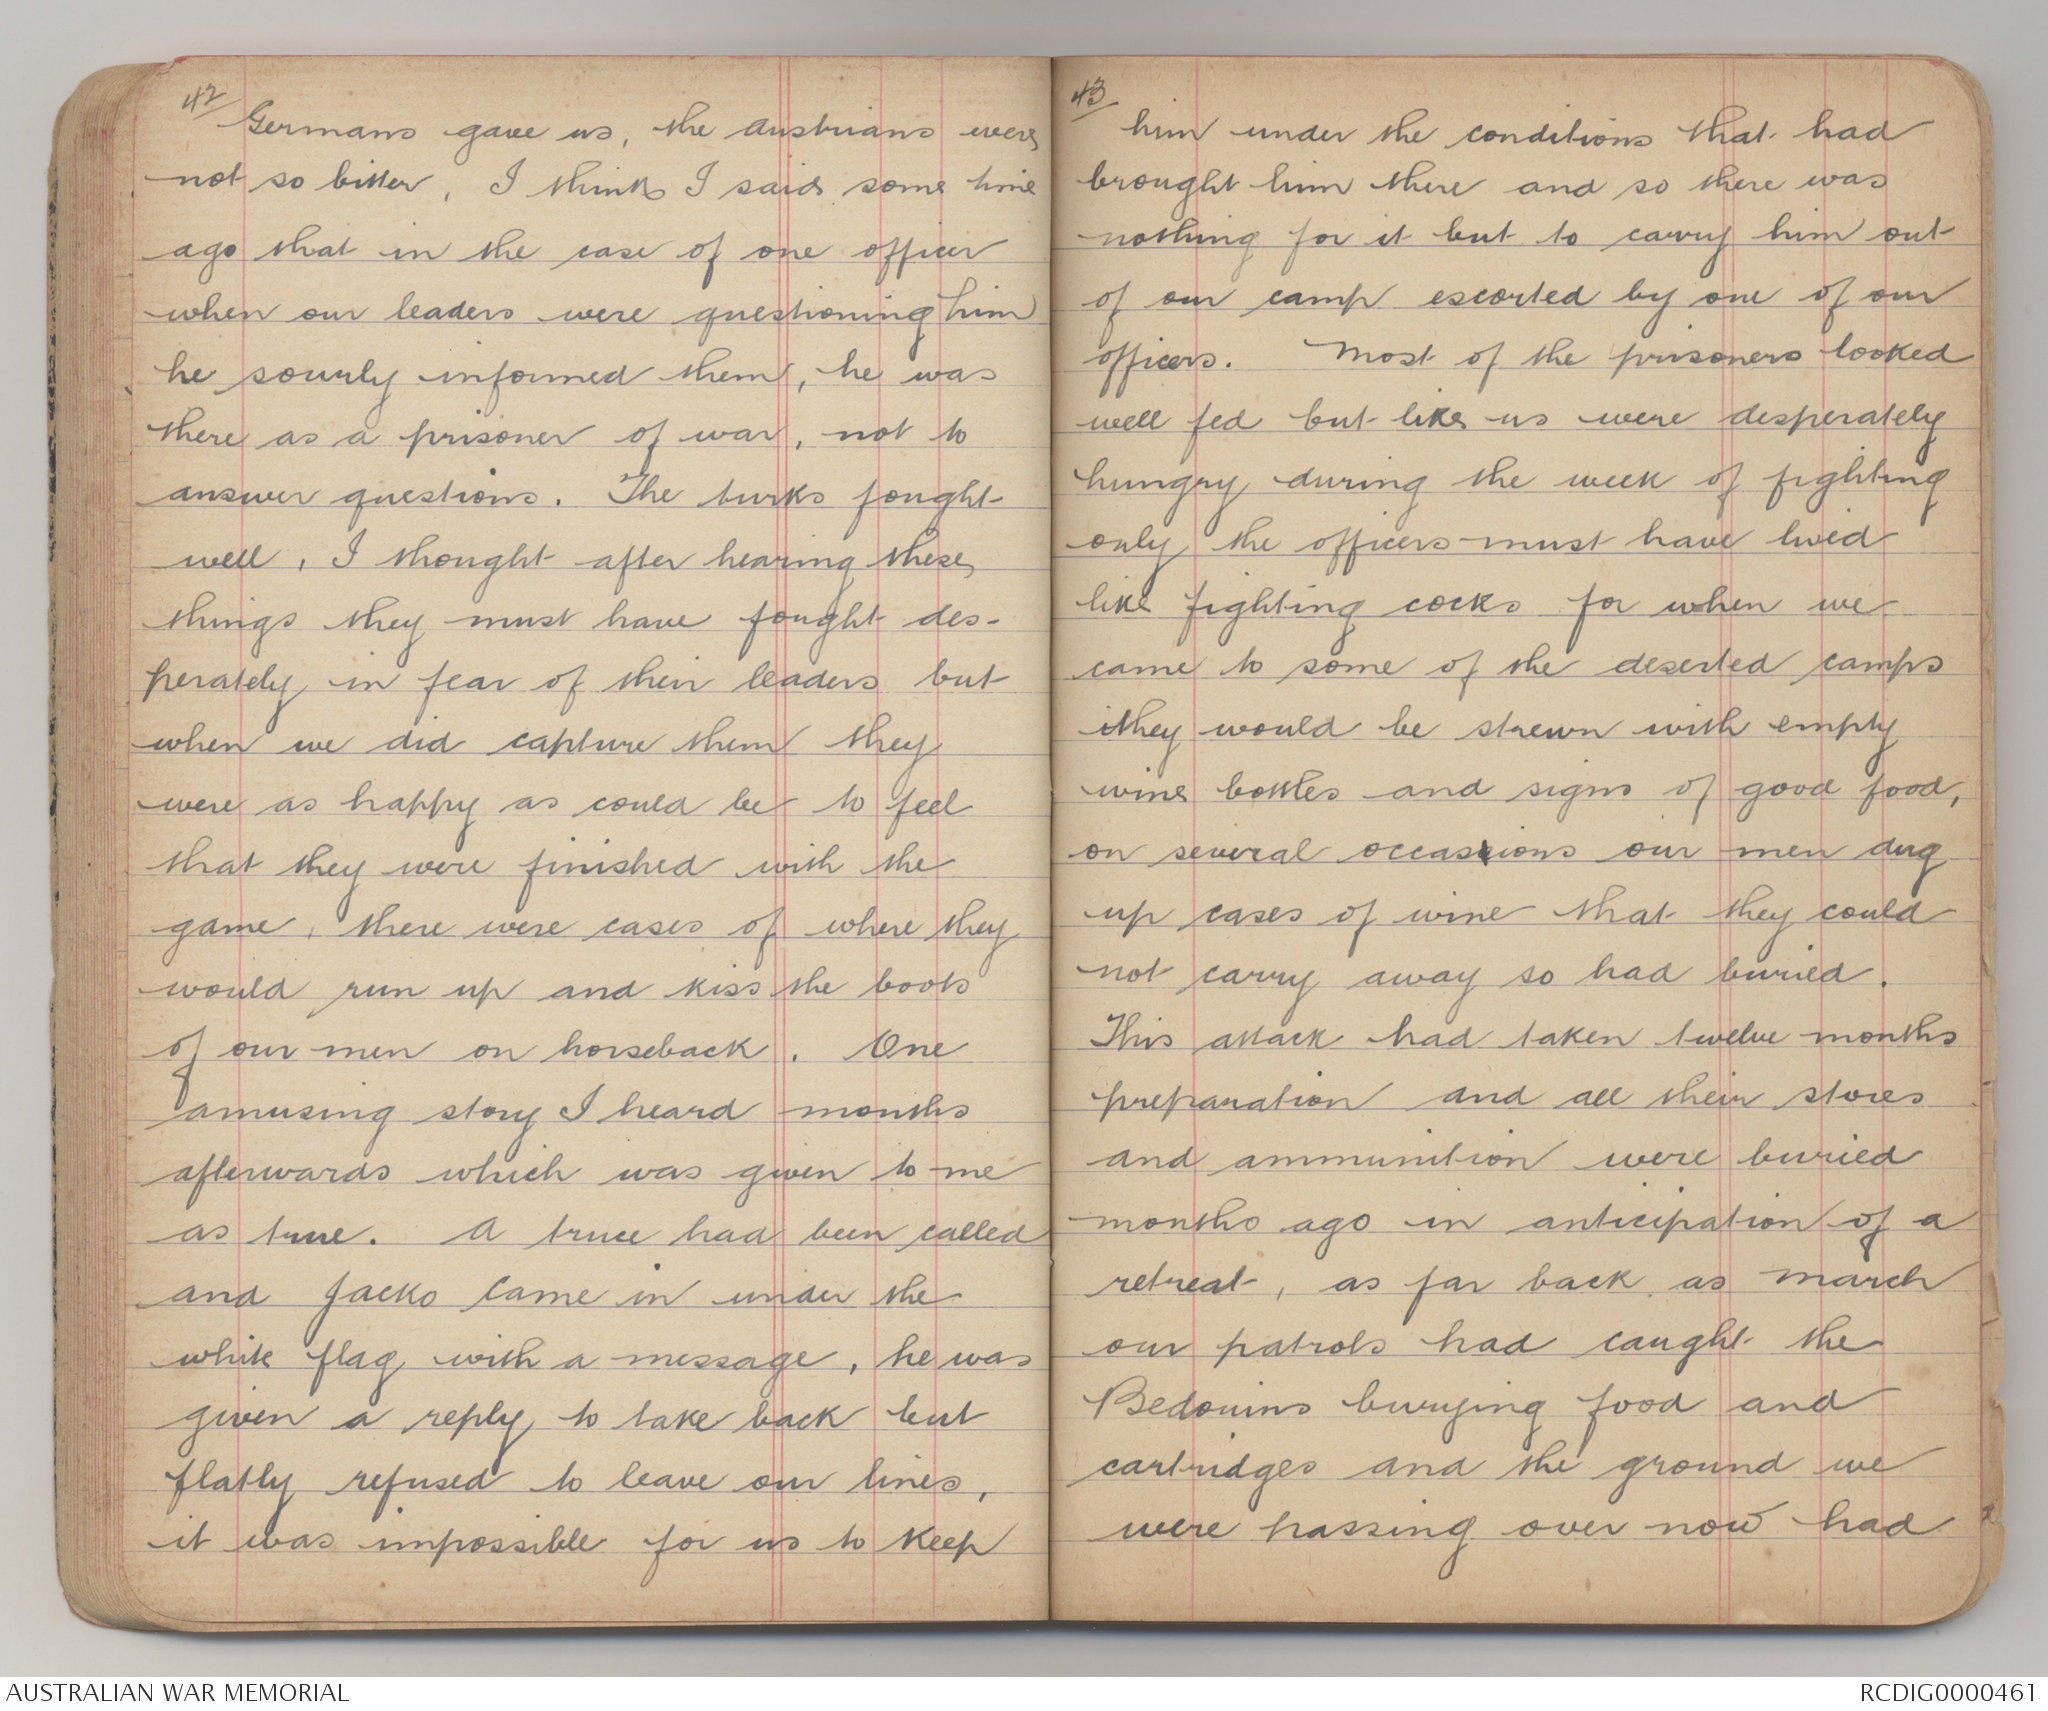 42
Germans gave us, the Austrians were
not so bitter, I think I said some time
ago that in the case of one officer
when our leaders were questioning him
he sourly informed them, he was
there as a prisoner of war, not to
answer questions. The turks fought
well, I thought after hearing these
things they must have fought des-
perately in fear of their leaders but
when we did capture them they
were as happy as could be to feel
that they were finished with the
game, there were cases of where they
would run up and kiss the boots
of our men on horseback. One
amusing story I heard months
afterwards which was given to me
as true. A truce had been called
and Jacko came in under the
white flag with a message, he was
given a reply to take back but
flatly refused to leave our lines,
it was impossible for us to keep
43
him under the conditions that had
brought him there and so there was
nothing for it but to carry him out
of our camp escorted by one of our
officers. Most of the prisoners looked
well fed but like us were desperately
hungry during the week of fighting
only the officers must have lived
like fighting cocks for when we
came to some of the deserted camps
they would be strewn with empty
wine bottles and signs of good food,
on several occasions our men dug
up cases of wine that they could
not carry away so had buried.
This attack had taken twelve months
preparation and all their stores
and ammunition were buried
months ago in anticipation of a
retreat, as far back as March
our patrols had caught the
Bedouins burying food and
cartridges and the ground we
were passing over now had
AUSTRALIAN WAR MEMORIAL
RCDIG0000461